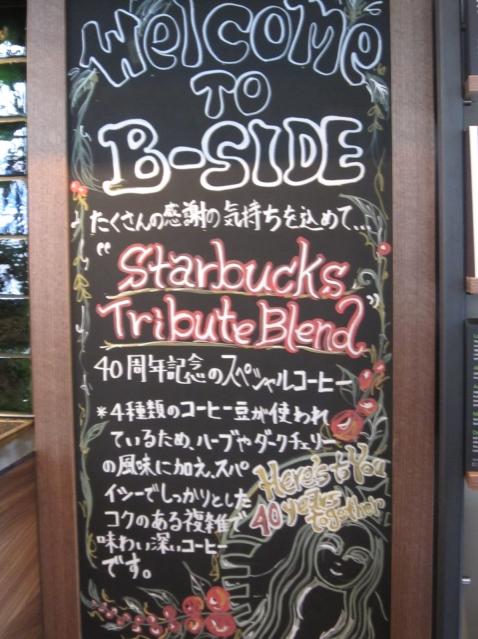 Welcome
TO
B-SIDE
たくさんの感謝の気持ちを込めて...
"Starbucks
Tribute Blend"
40周年記念のスペシャルコーヒー
*4種類のコーヒー豆が使われ
ているため、ハーブやダークチェリー
の風味に加え、スパ
イシーでしっかりとした
コクのある複雑で
味わい深いコーヒー
です。
Here's to You
40 years
together